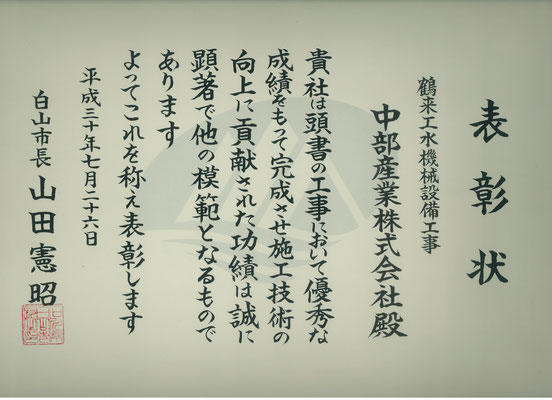 表彰状
鶴来工水機械設備工事
中部産業株式会社殿
貴社は頭書の工事において優秀な
成績をもって完成させ施工技術の
向上に貢献された功績は誠に
顕著で他の模範となるもので
あります
よってこれを称え表彰します
平成三十年七月二十六日
白山市長 山田憲昭